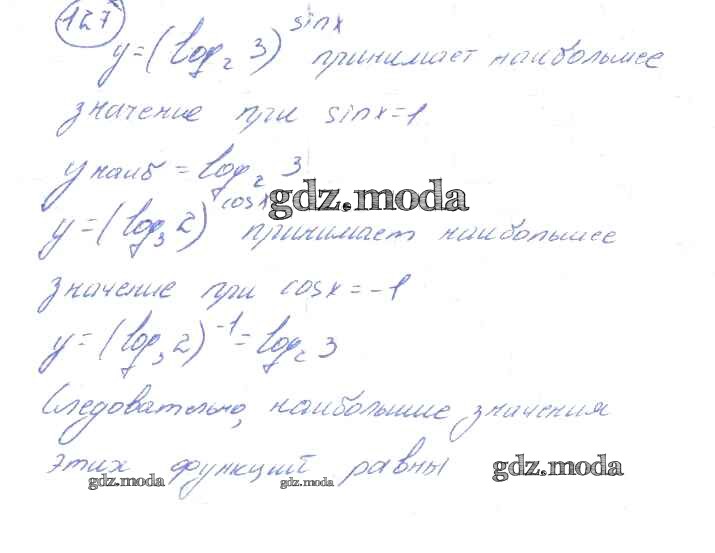 127
y=(log₂ 3)^sinx принимает наибольшее
значение при sinx=1
y наиб = log₂ 3
gdz.moda
y=(log₃ 2)^cosx принимает наибольшее
значение при cosx=-1
y=(log₃ 2)^-1 = log₂ 3
Следовательно, наибольшие значения
этих функций равны
gdz.moda gdz.moda gdz.moda